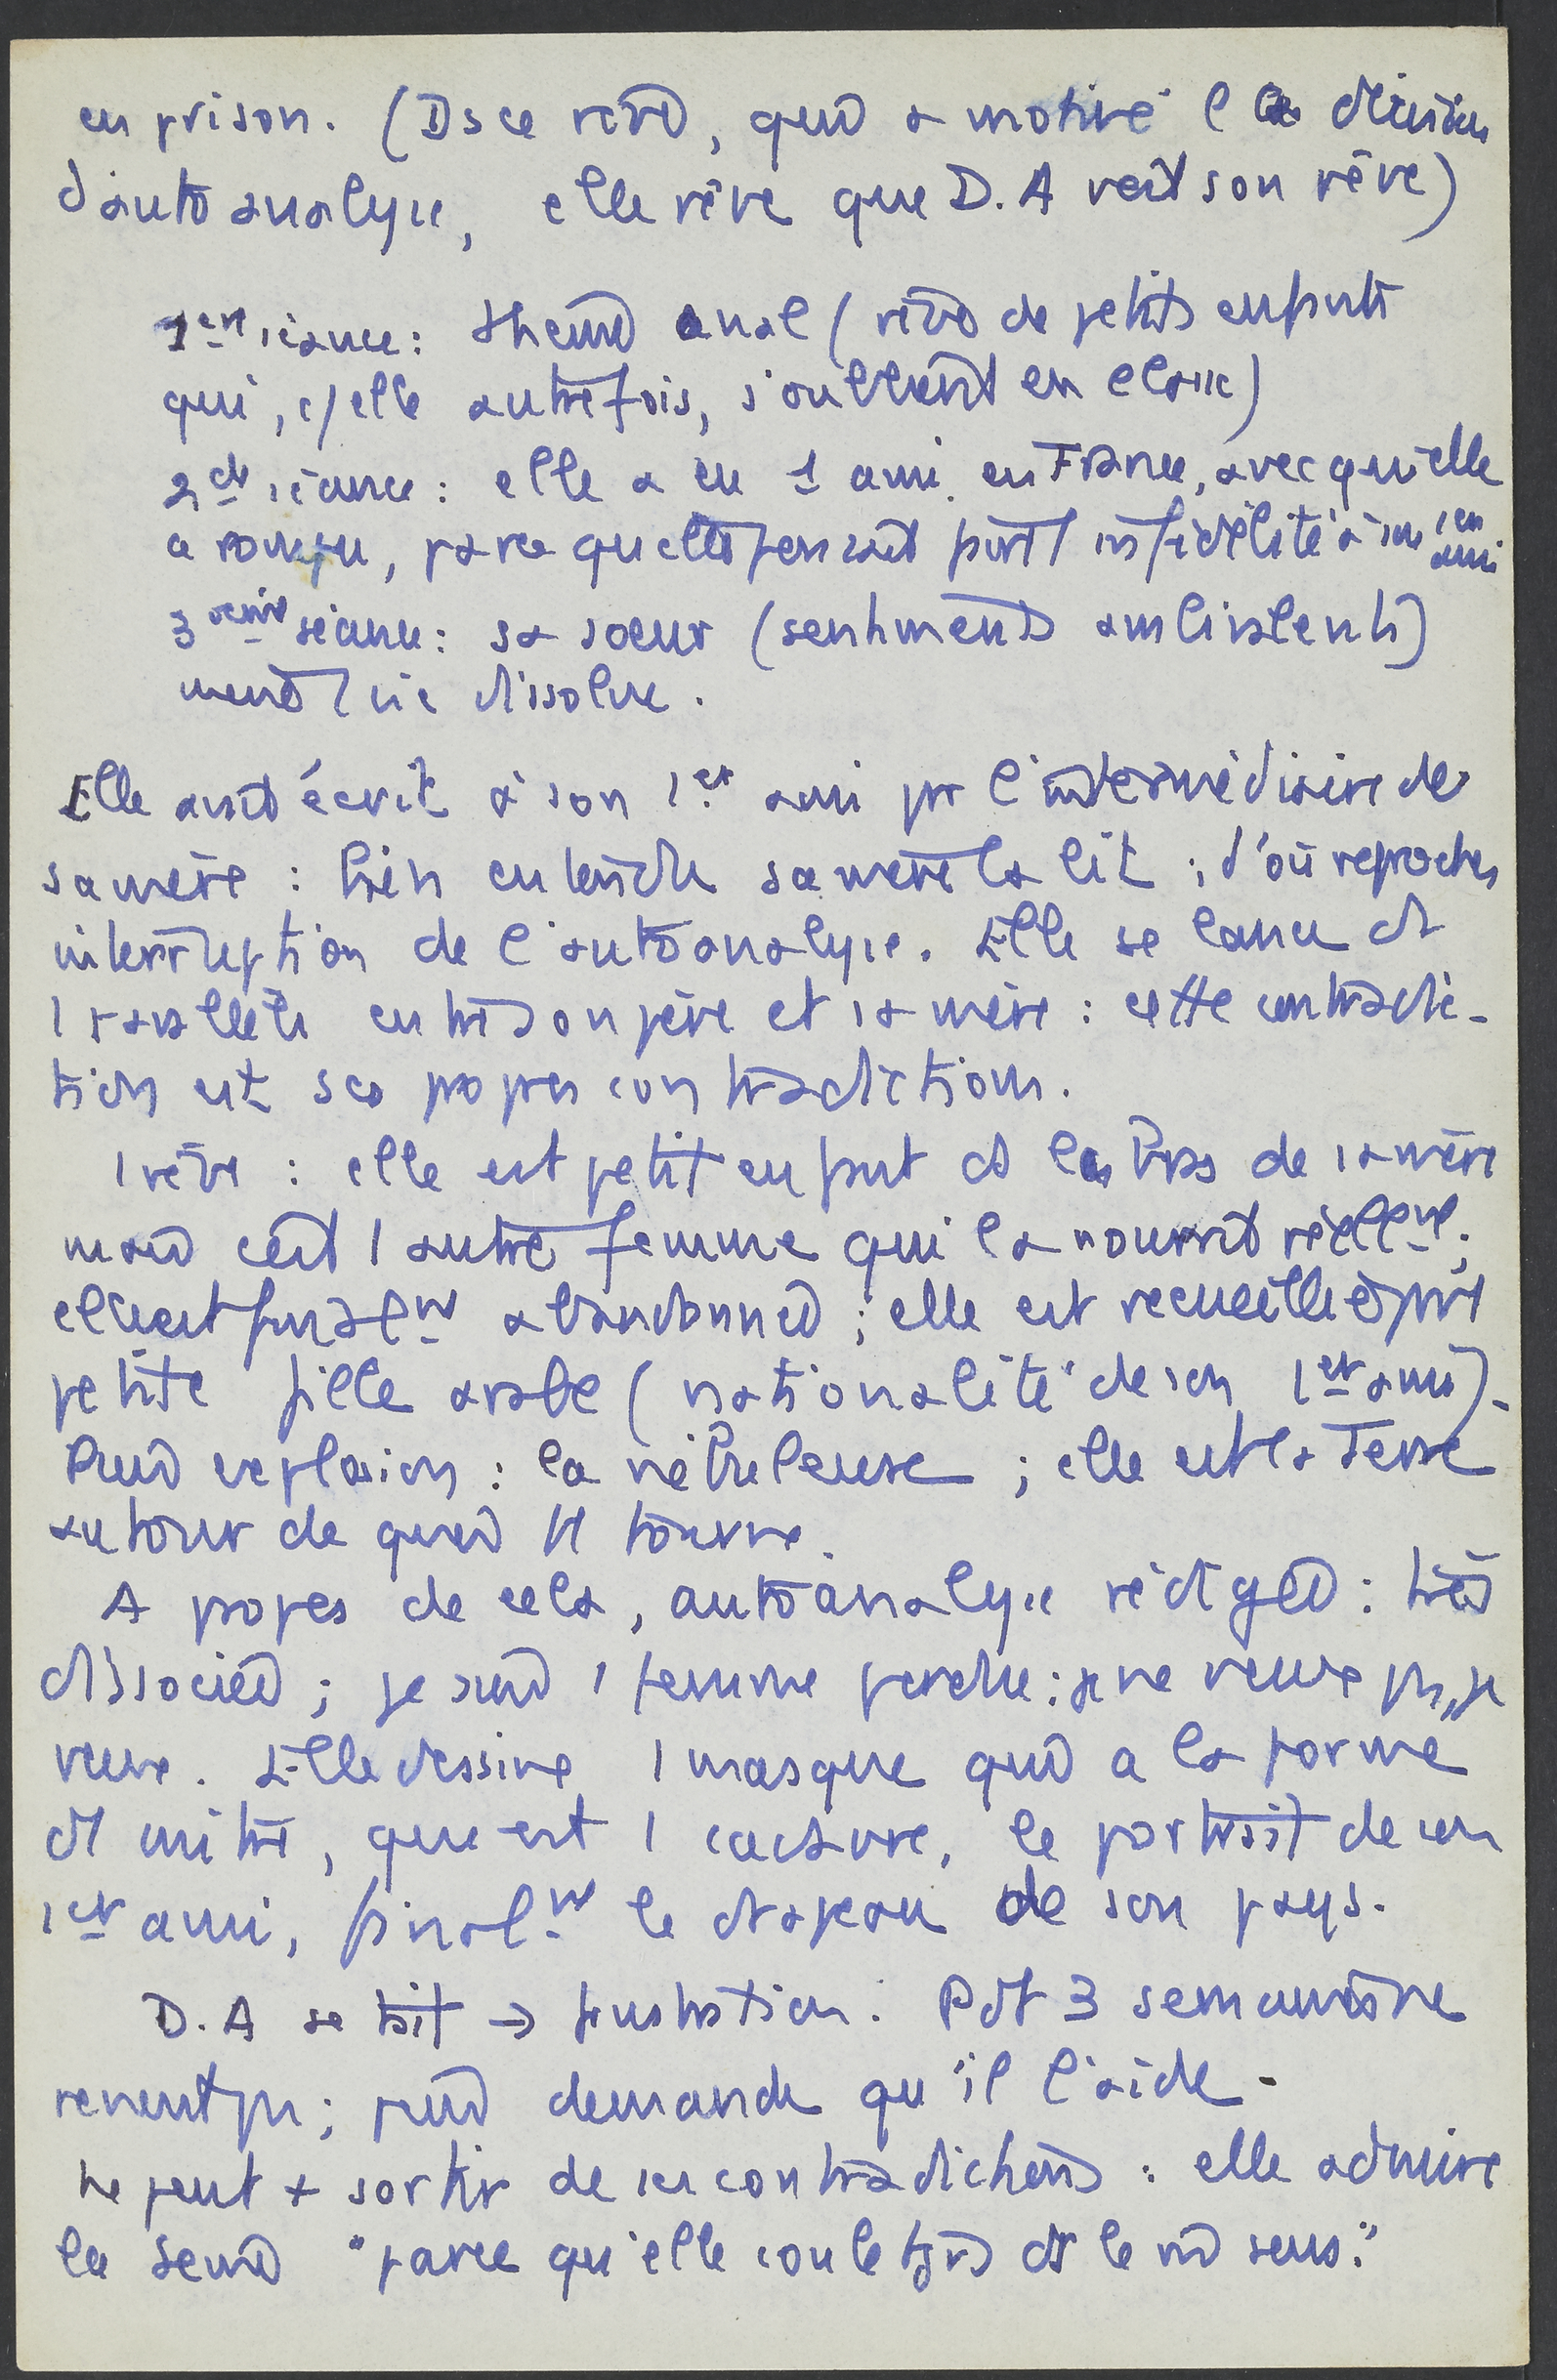 en prison. (Ds ce rêve, qui a motivé l la décision
d'autoanalyse, elle rêve que D.A voit son rêve)
1ère séance : thème anal (rêve de petits enfants
qui, c/ elle autrefois, s'oublient en classe)
2de séance : elle a eu 1 ami en France, avec qui elle
a rompu, parce qu'elle pensait 1 infidélité à son 1er ami
3ème séance : sa soeur (sentiments ambivalents)
mène 1 vie dissolue.
Elle avait écrit à son 1er ami par l'intermédiaire de
sa mère : bien entendu sa mère la lit ; d'où reproches
interruption de l'autoanalyse. Elle se lance ds
1 parallèle entre son père et sa mère : cette contradic-
tion est ses propres contradictions.
1 rêve : elle est petit enfant ds les bras de sa mère
mais c'est 1 autre femme qui la nourrit réellemt ;
elle est finalmt abandonnée ; elle est recueillie par 1
petite fille arabe (nationalité de son 1er ami).
Puis explosion : la nébuleuse ; elle est la Terre
autour de quoi tt tourne.
A propos de cela, autoanalyse rédigée : très
dissociée ; je suis 1 femme perdue : je ne veux pas, je
veux. Elle dessine 1 masque qui a la forme
d'1 mitre, que est 1 , le portrait de son
1er ami, finalmt le drapeau de son pays.
D.A se tait → frustration. Pdt 3 semaines ne
revient pas ; puis demande qu'il l'aide.
Ne peut + sortir de ses contradictions : elle admire
la Seine "parce qu'elle coule tjrs ds le même sens."